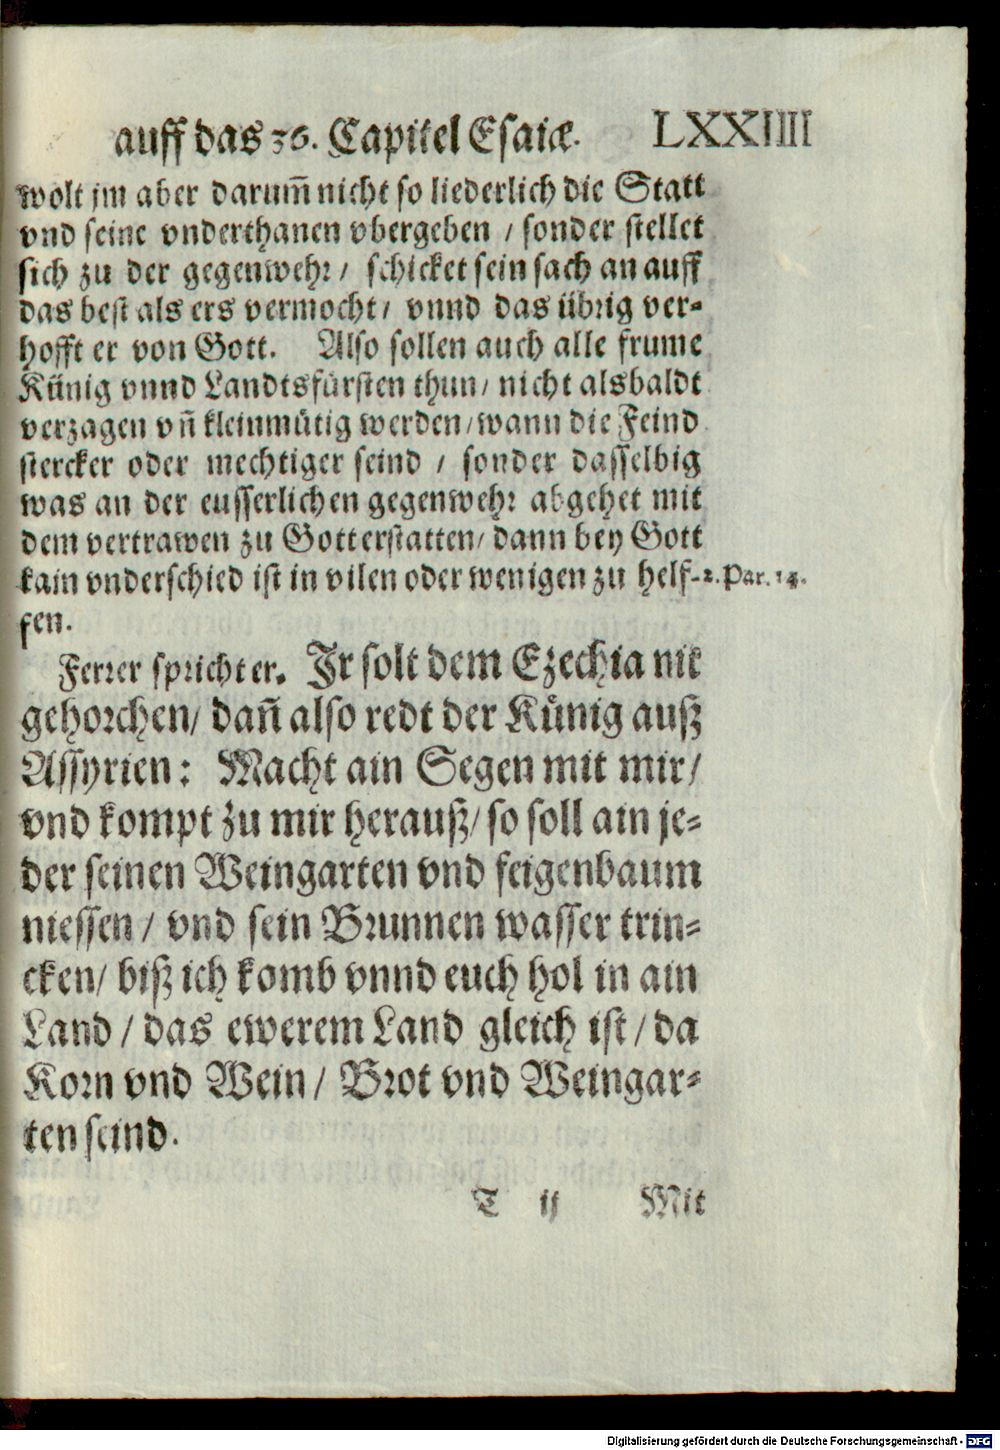 auff das 36. Capitel Esaiæ. LXXIIII
wolt jm aber darum̃ nicht so liederlich die Statt
vnd seine vnderthanen vbergeben / sonder stellet
sich zu der gegenwehr / schicket sein sach an auff
das best als ers vermocht / vnnd das übrig ver-
hofft er von Gott. Also sollen auch alle frume
Künig vnnd Landtsfürsten thun / nicht alsbaldt
verzagen vñ kleinmütig werden / wann die Feind
stercker oder mechtiger seind / sonder dasselbig
was an der eusserlichen gegenwehr abgehet mit
dem vertrawen zu Gott erstatten / dann bey Gott
kain vnderschied ist in vilen oder wenigen zu helf- 2. Par. 14.
fen.
Ferrer spricht er. Ir solt dem Ezechia nit
gehorchen / dañ also redt der Künig auß
Assyrien: Macht ain Segen mit mir /
vnd kompt zu mir herauß / so soll ain je-
der seinen Weingarten vnd feigenbaum
niessen / vnd sein Brunnen wasser trin-
cken / biß ich komb vnnd euch hol in ain
Land / das ewerem Land gleich ist / da
Korn vnd Wein / Brot vnd Weingar-
ten seind.
T ij Mit
Digitalisierung gefördert durch die Deutsche Forschungsgemeinschaft - DFG